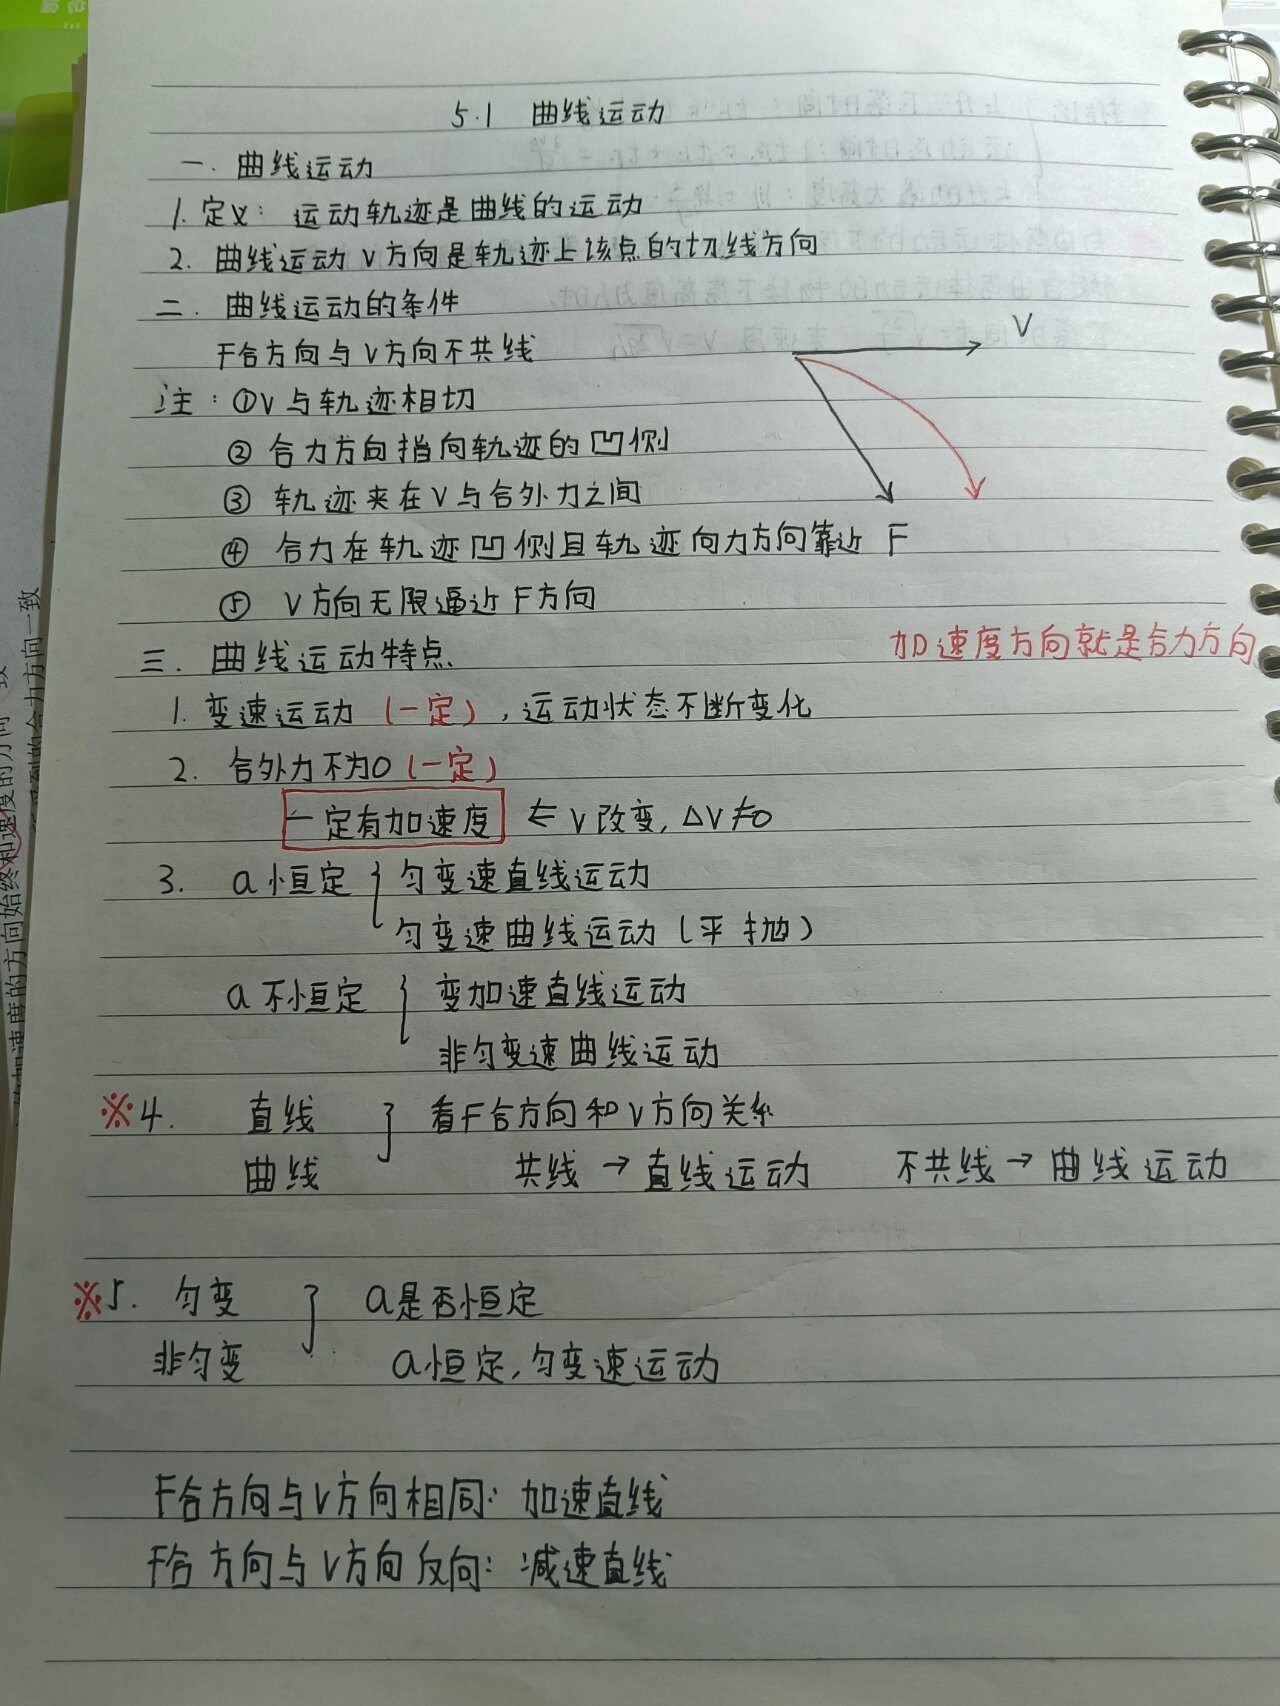 5.1 曲线运动
一. 曲线运动
1. 定义: 运动轨迹是曲线的运动
2. 曲线运动V方向是轨迹上该点的切线方向
二. 曲线运动的条件
F合方向与V方向不共线
V
注: ①V与轨迹相切
② 合力方向指向轨迹的凹侧
③ 轨迹夹在V与合外力之间
④ 合力在轨迹凹侧且轨迹向力方向靠近 F
⑤ V方向无限逼近F方向
三. 曲线运动特点
加速度方向就是合力方向
1. 变速运动(一定), 运动状态不断变化
2. 合外力不为0(一定)
一定有加速度 ⇐ V改变, ΔV≠0
3. a恒定 { 匀变速直线运动
匀变速曲线运动(平抛)
a不恒定 { 变加速直线运动
非匀变速曲线运动
※4. 直线 } 看F合方向和V方向关系
曲线 共线 → 直线运动 不共线 → 曲线运动
※5. 匀变 } a是否恒定
非匀变 a恒定, 匀变速运动
F合方向与V方向相同: 加速直线
F合方向与V方向反向: 减速直线